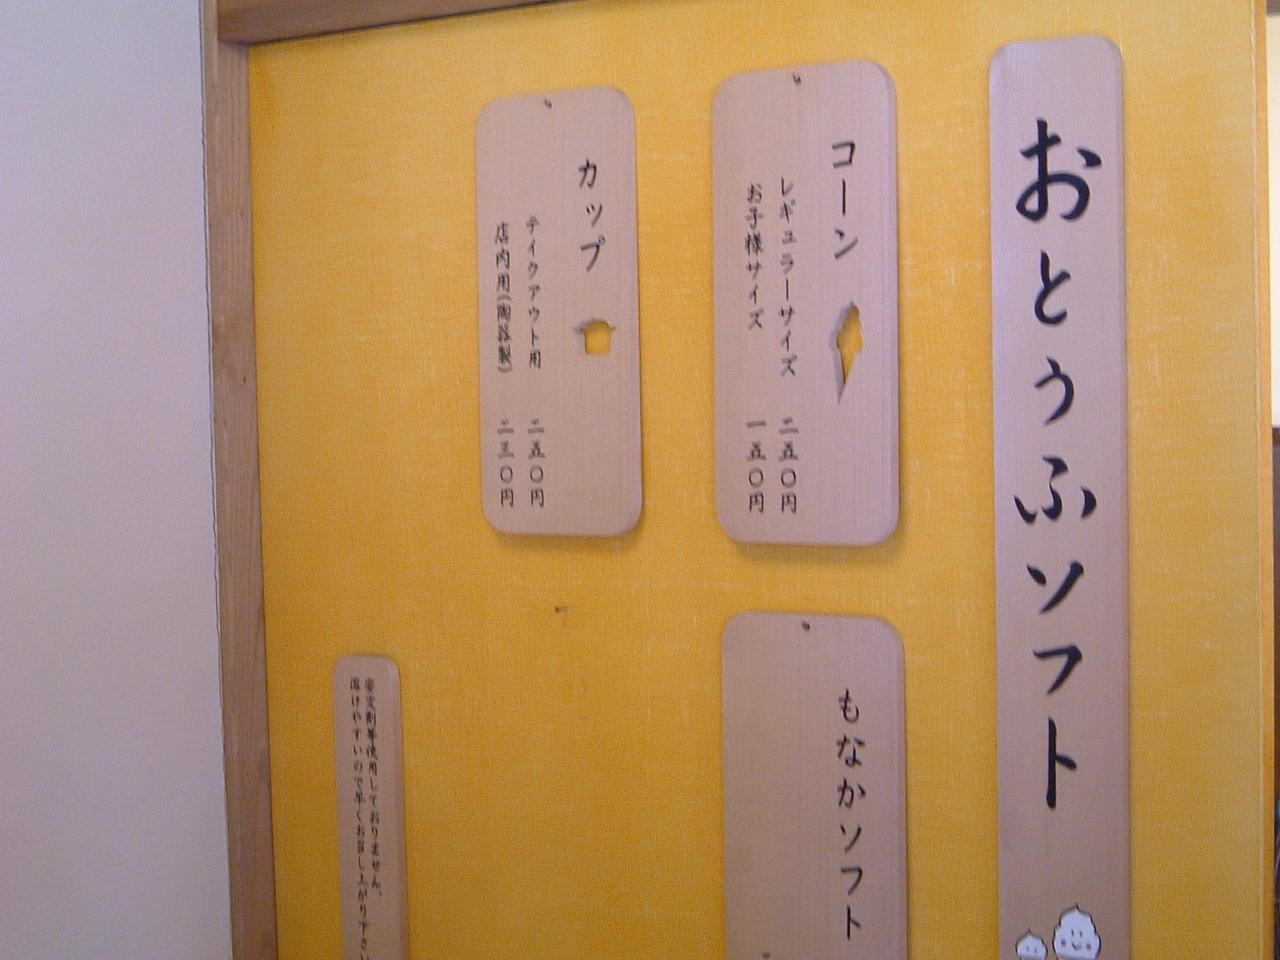 おとうふソフト
コーン
レギュラーサイズ 二五〇円
お子様サイズ 一五〇円
もなかソフト
カップ
テイクアウト用 二五〇円
店内用(陶器製) 二三〇円
安定剤等使用しておりません。
溶けやすいので早くお召し上がり下さい